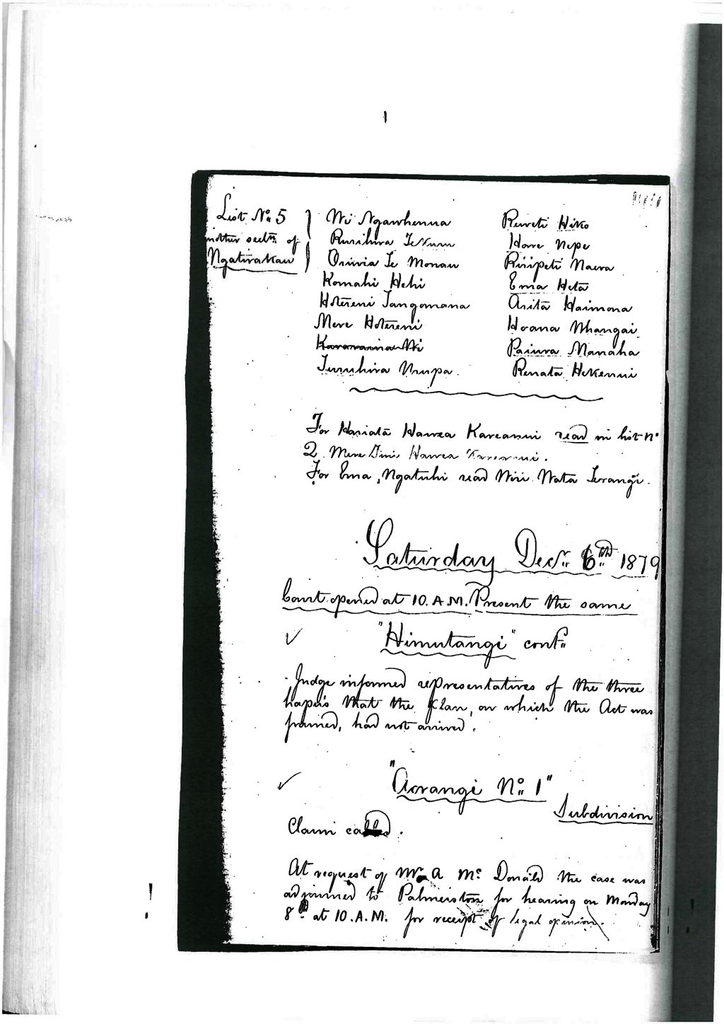 List No 5
another sectn of
Ngatirakau
Wi Ngawhenua
Rurihira Te Kuru
Oriwia Te Monau
Komahi Hehi
Hoterini Tangomana
Mere Hotereni
Turuhira Wupa
Reweti Hiko
Hare Nepe
Riripeti Naera
Ema Heta
Arita Haimona
Hoana Whangai
Paiura Manaha
Renata Hekenui
For Hariata Hawea Kareanui read in list No
2 Mere Hawea
For Ema Ngatuhi read Wiri Wata Terangi.
Saturday Decr 6th 1879
Court opened at 10. A.M. Present the same
"Himutangi" contd
Judge informed representatives of the three
hapu's that the plan, on which the Act was
framed, had not arrived.
"Aorangi No 1"
Subdivision
Claim called.
At request of Mr A McDonald the case was
adjourned to Palmerston for hearing on Monday
8th at 10.A.M. for receipt of legal opinion.